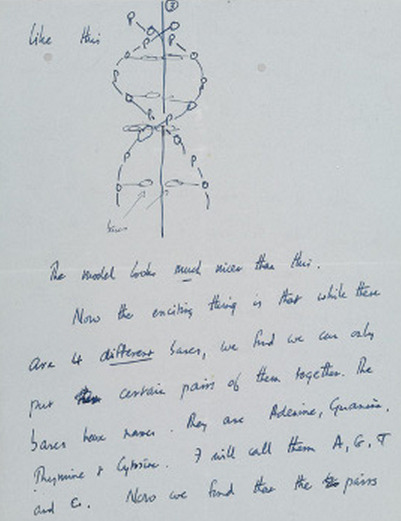 ③
Like this
P
P
P
P
P
P
P
P
bases
The model looks much nicer than this.
Now the exciting thing is that while there
are 4 different bases, we find we can only
put certain pairs of them together. The
bases have names. They are Adenine, Guanine,
Thymine & Cytosine. I will call them A, G, T
and C. Now we find that the pairs